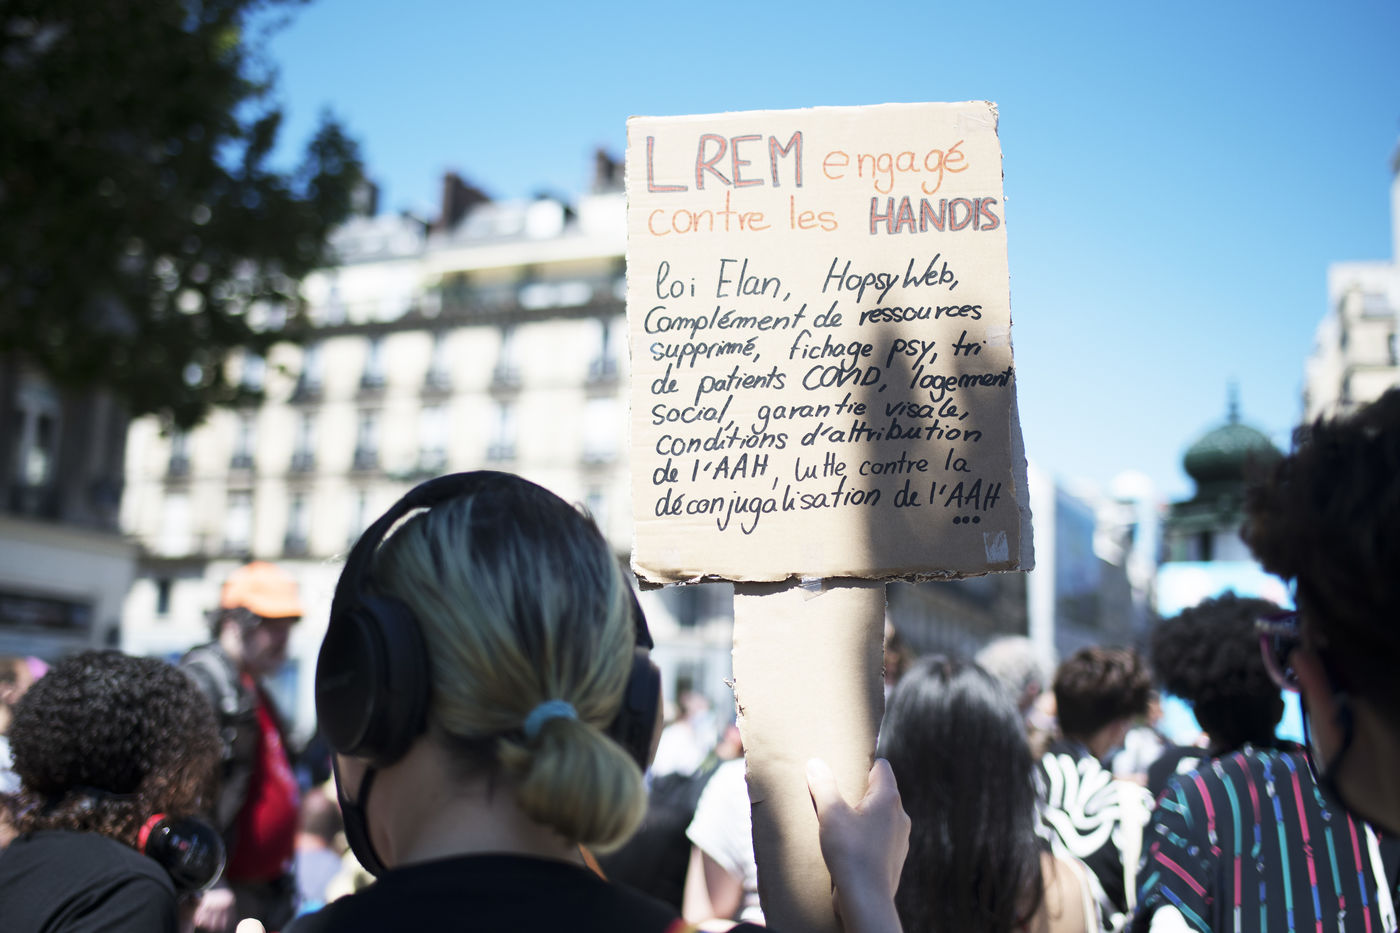 LREM engagé
contre les HANDIS
loi Elan, HopsyWeb,
Complément de ressources
supprimé, fichage psy, tri
de patients COVID, logement
social, garantie visale,
conditions d'attribution
de l'AAH, lutte contre la
déconjugalisation de l'AAH
...